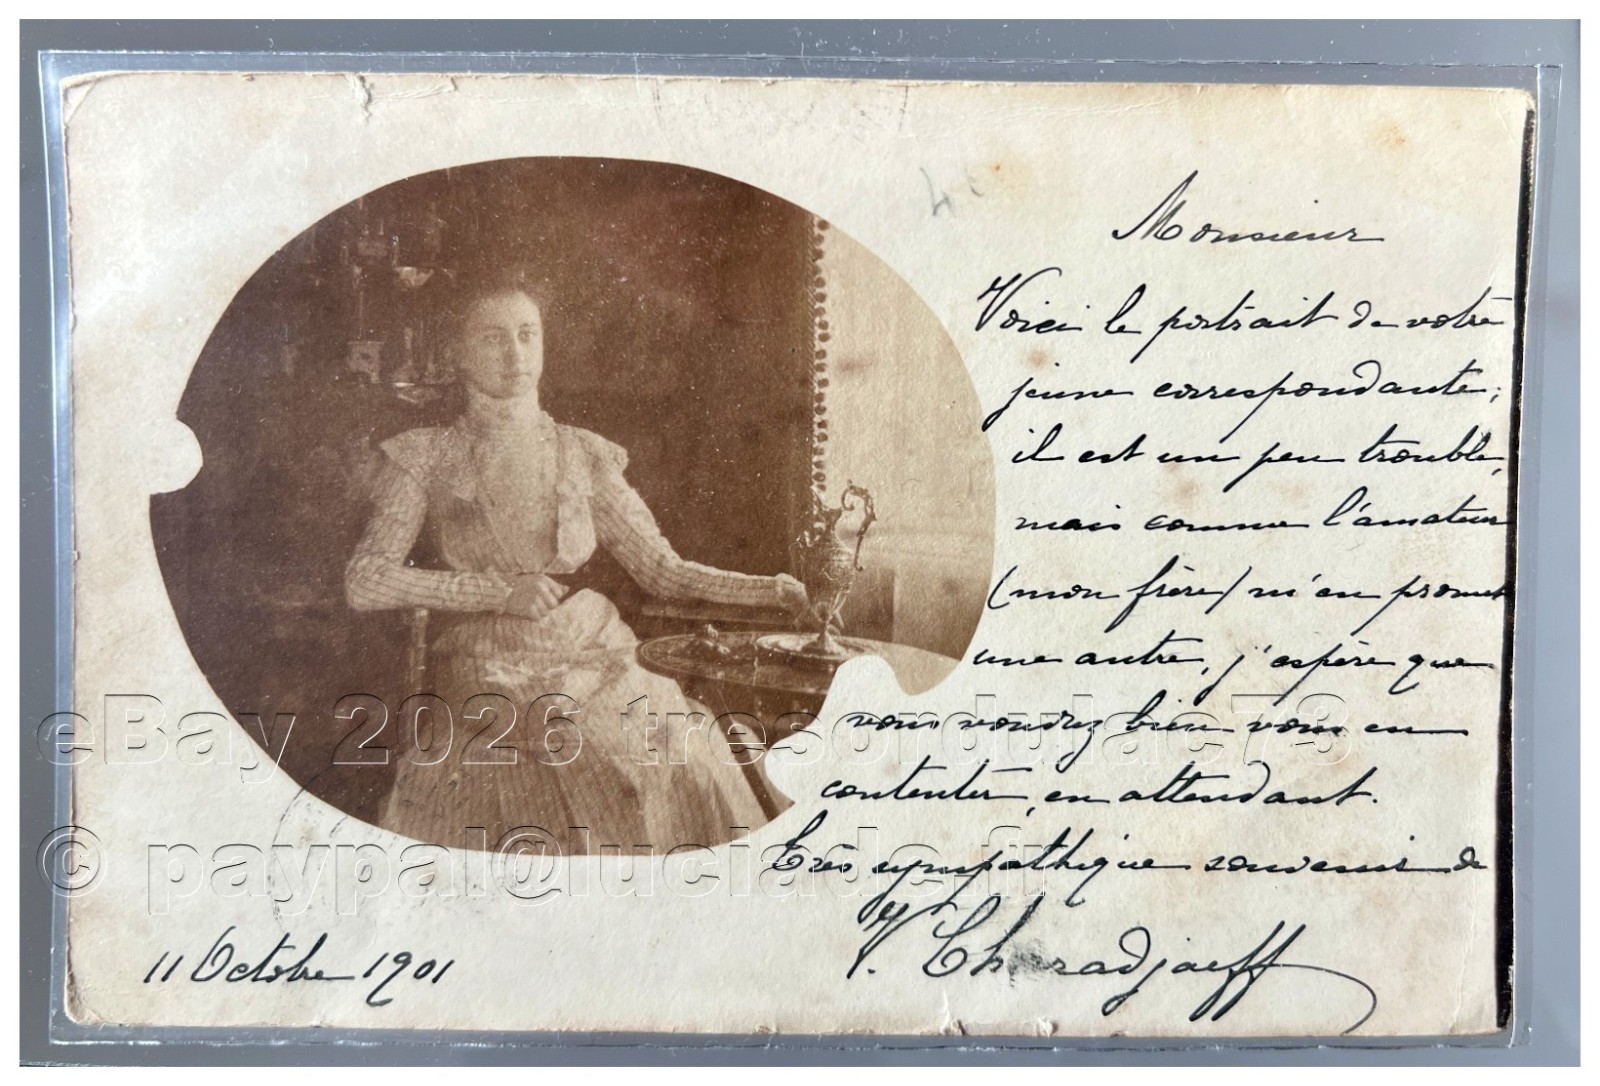 Monsieur
Voici le portrait de votre
jeune correspondante;
il est un peu trouble,
mais comme l'amateur
(mon frère) m'en promet
une autre, j'espère que
vous voudrez bien vous en
contenter, en attendant.
Très sympathique souvenir de
V.
11 Octobre 1901
eBay 2026 tresordulac73
© paypal@luciadc.fr